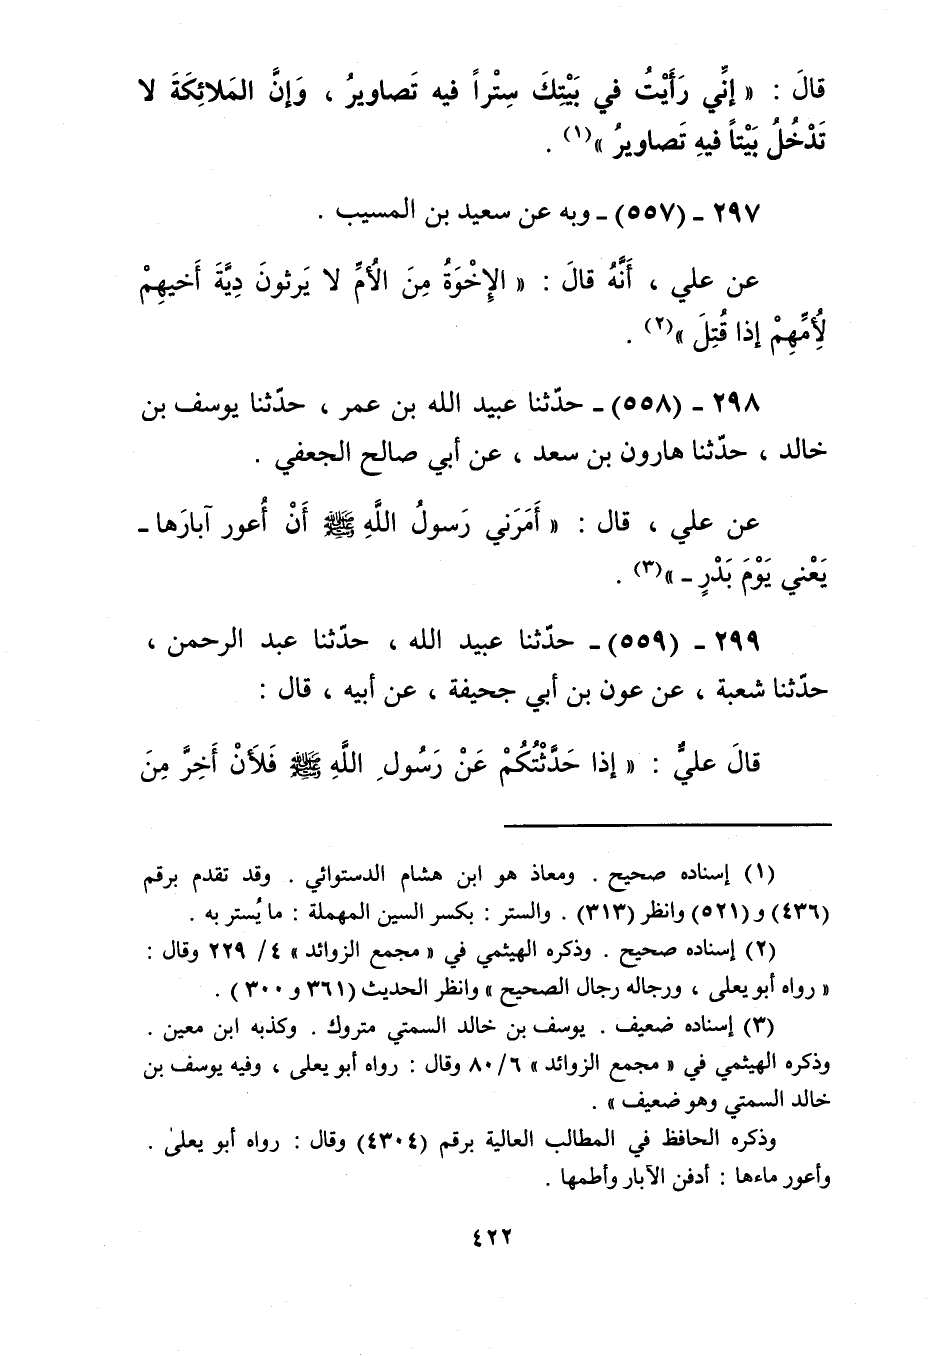 قالَ : « إنِّي رَأَيْتُ في بَيْتِكَ سِتْراً فيه تَصاويرُ ، وَإنَّ المَلائِكَةَ لا
تَدْخُلُ بَيْتاً فيهِ تَصاويرُ »(١) .
٢٩٧ ـ (٥٥٧) ـ وبه عن سعيد بن المسيب .
عن علي ، أَنَّهُ قالَ : « الإِخْوَةُ مِنَ الأُمِّ لا يَرثونَ دِيَّةَ أَخيهِمْ
لُأِمِّهِمْ إذا قُتِلَ »(٢) .
٢٩٨ ـ (٥٥٨) ـ حدّثنا عبيد الله بن عمر ، حدّثنا يوسف بن
خالد ، حدّثنا هارون بن سعد ، عن أبي صالح الجعفي .
عن علي ، قال : « أَمَرَني رَسولُ اللَّهِ ﷺ أَنْ أُعور آبارَها ـ
يَعْني يَوْمَ بَدْرٍ ـ »(٣) .
٢٩٩ ـ (٥٥٩) ـ حدّثنا عبيد الله ، حدّثنا عبد الرحمن ،
حدّثنا شعبة ، عن عون بن أبي جحيفة ، عن أبيه ، قال :
قالَ عليٌّ : « إذا حَدَّثْتُكُمْ عَنْ رَسُولِ اللَّهِ ﷺ فَلَأنْ أَخِرَّ مِنَ
(١) إسناده صحيح . ومعاذ هو ابن هشام الدستوائي . وقد تقدم برقم
(٤٣٦) و (٥٢١) وانظر (٣١٣) . والستر : بكسر السين المهملة : ما يُستر به .
(٢) إسناده صحيح . وذكره الهيثمي في « مجمع الزوائد » ٤ / ٢٢٩ وقال :
« رواه أبو يعلى ، ورجاله رجال الصحيح » وانظر الحديث (٣٦١ و ٣٠٠) .
(٣) إسناده ضعيف . يوسف بن خالد السمتي متروك . وكذبه ابن معين .
وذكره الهيثمي في « مجمع الزوائد » ٦ / ٨٠ وقال : رواه أبو يعلى ، وفيه يوسف بن
خالد السمتي وهو ضعيف » .
وذكره الحافظ في المطالب العالية برقم (٤٣٠٤) وقال : رواه أبو يعلىٰ .
وأعور ماءها : أدفن الآبار وأطمها .
٤٢٢